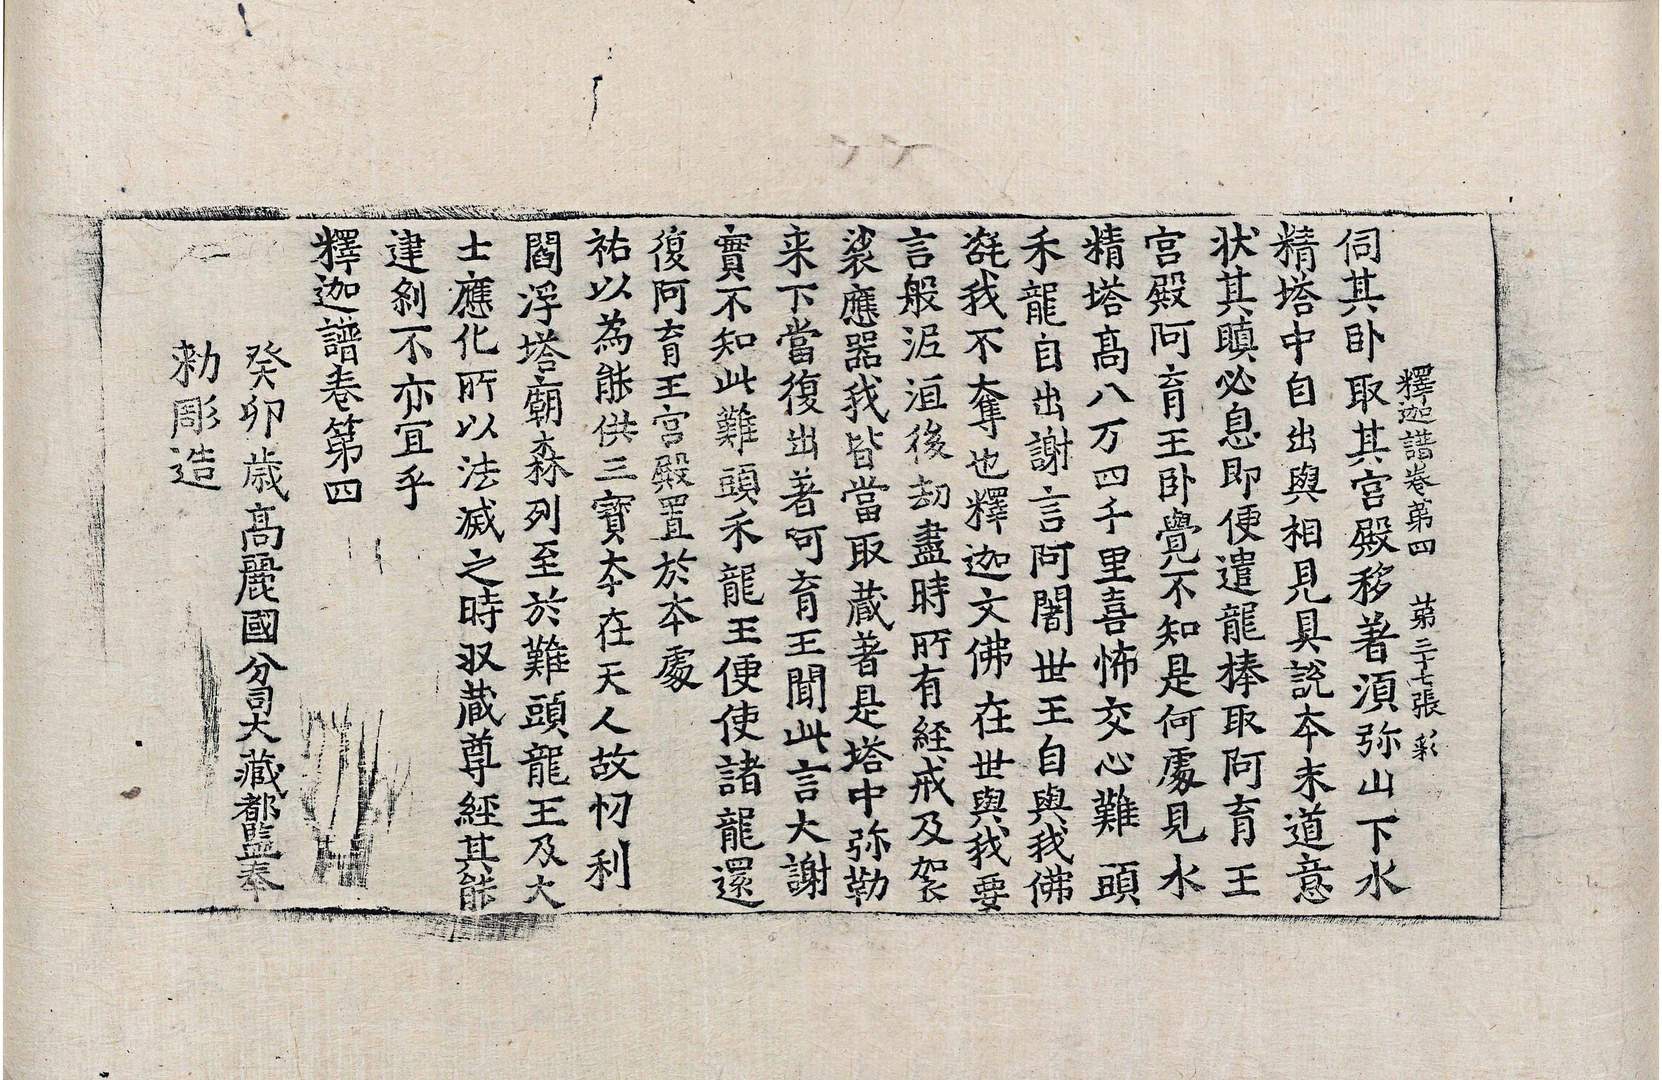 釋迦譜卷第四 第三十七張 彩
伺其卧取其宮殿移著湏弥山下水
精塔中自出與相見具說本末道意
状其瞋必息即便遣龍棒取阿育王
宮殿阿育王卧覺不知是何處見水
精塔髙八万四千里喜怖交心難頭
禾龍自出謝言阿闍世王自與我佛
髭我不奪也釋迦文佛在世與我要
言般泥洹後劫盡時所有経戒及袈
裟應器我皆當取蔵著是塔中弥勒
来下當復出著阿育王聞此言大謝
實不知此難頭禾龍王便使諸龍還
復阿育王宮殿置於本處
祐以為能供三寶夲在天人故忉利
閻浮塔廟森列至於難頭龍王及大
士應化所以法滅之時収蔵尊經其能
建刹不亦宜乎
釋迦譜卷第四
癸卯歳髙麗國分司大藏都監奉
勑彫造